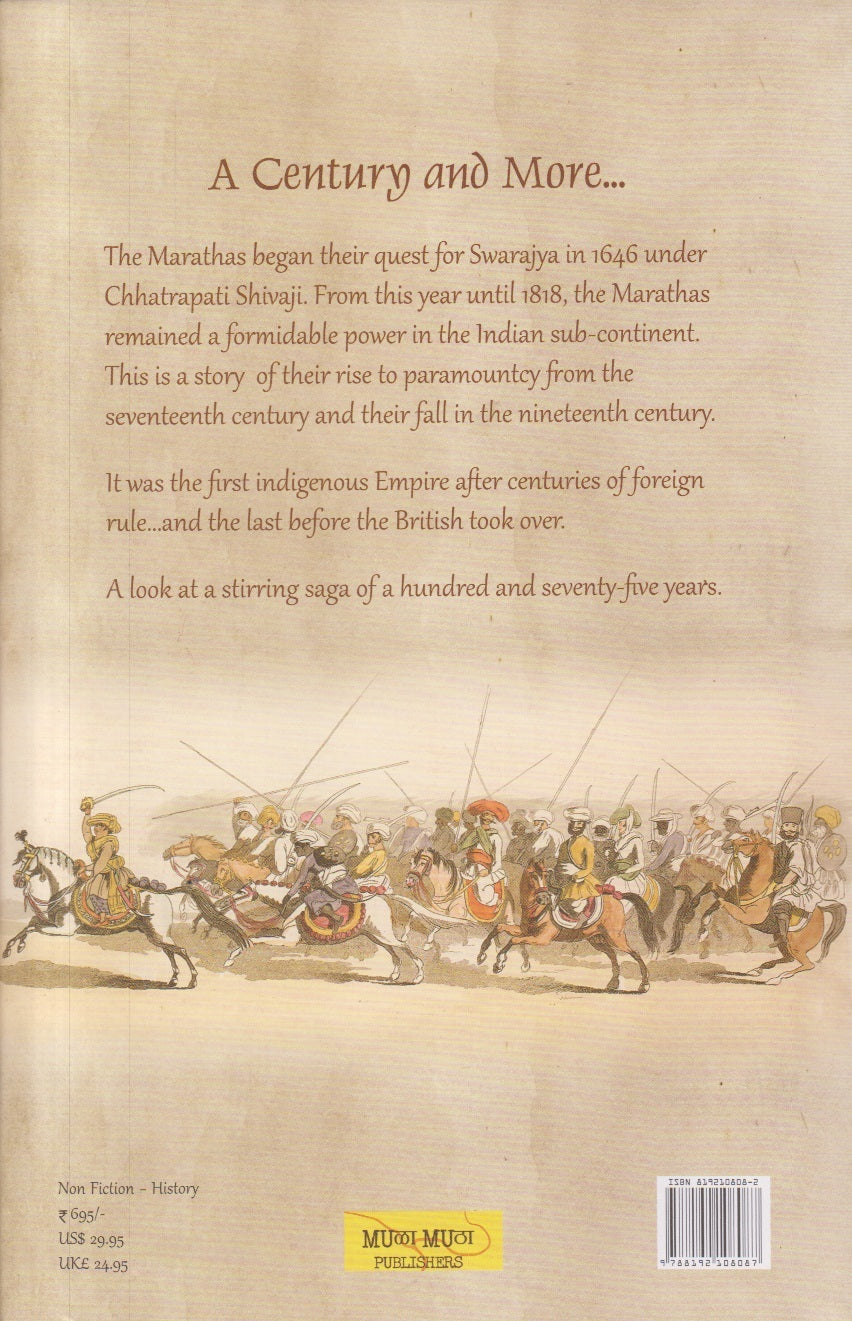 A Century and More...
The Marathas began their quest for Swarajya in 1646 under
Chhatrapati Shivaji. From this year until 1818, the Marathas
remained a formidable power in the Indian sub-continent.
This is a story of their rise to paramountcy from the
seventeenth century and their fall in the nineteenth century.
It was the first indigenous Empire after centuries of foreign
rule...and the last before the British took over.
A look at a stirring saga of a hundred and seventy-five years.
Non Fiction – History
₹ 695/-
US$ 29.95
UK£ 24.95
MUळा MUठा
PUBLISHERS
ISBN 819210808-2
9 788192 108087